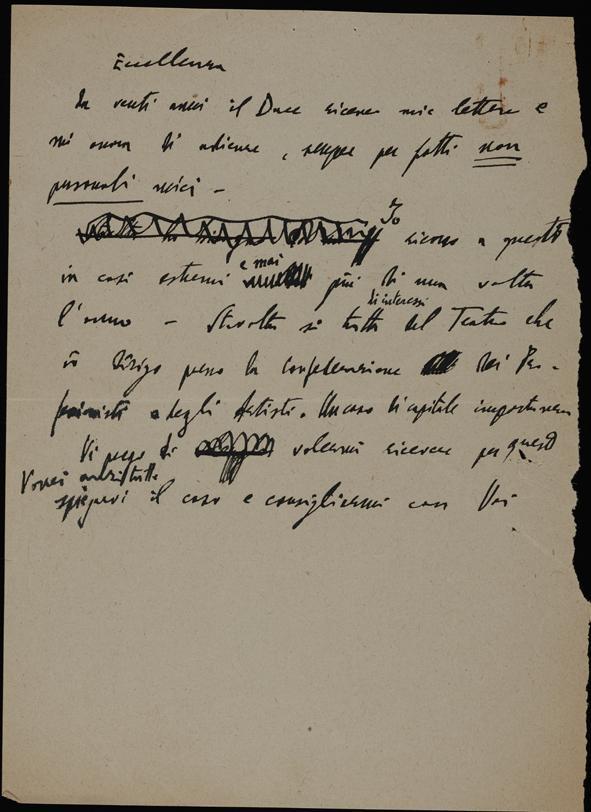 Eccellenza
In venti anni il Duce riceve mie lettere e
mi onora di udienze, sempre per fatti non
personali miei -
Io ricorro a questo
in casi estremi e mai più di una volta
l'anno - Stavolta si tratta di interessi del Teatro che
io dirigo presso la Confederazione dei Pro-
fessionisti e degli Artisti. Un caso di capitale importanza
Vi prego di volermi ricevere per questo
Vorrei anzitutto
spiegarvi il caso e consigliarmi con Voi